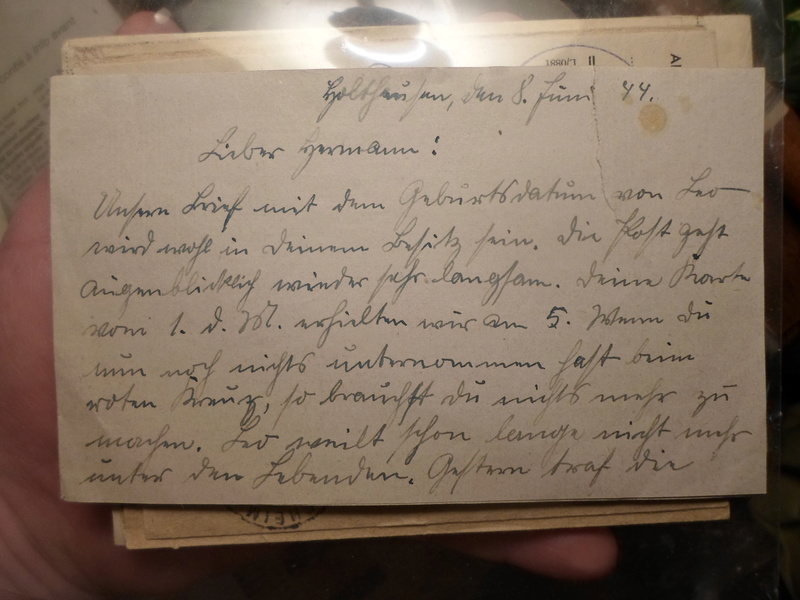 Holthausen, den 8. Juni 44.
Lieber Hermann!
Unsern Brief mit dem Geburtsdatum von Leo
wird wohl in Deinem Besitz sein. Die Post geht
augenblicklich wieder sehr langsam. Deine Karte
vom 1. d. M. erhielten wir am 5. Wenn du
nun noch nichts unternommen hast beim
roten Kreuz, so brauchst du nichts mehr zu
machen. Leo weilt schon lange nicht mehr
unter den Lebenden. Gestern traf die